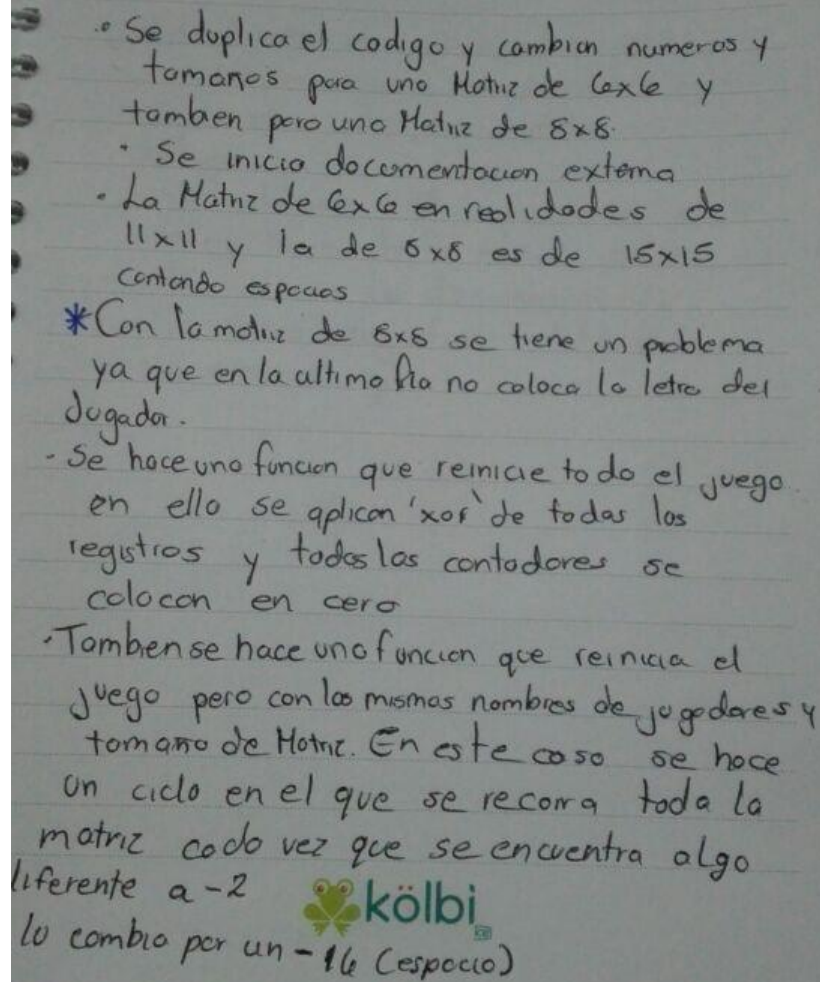 • Se duplica el codigo y cambian numeros y
tamanos para una Matriz de 6x6 y
tambien para una Matriz de 8x8.
• Se inicio documentacion externa
• La Matriz de 6x6 en realidades de
11x11 y la de 8x8 es de 15x15
contando espacios
*Con la matriz de 8x8 se tiene un problema
ya que en la ultima fila no coloca la letra del
Jugador.
- Se hace una funcion que reinicie todo el juego.
en ello se aplican 'xor' de todas los
registros y todos los contadores se
colocan en cero
• Tambien se hace una funcion que reinicia el
juego pero con los mismos nombres de jugadores y
tamano de Matriz. En este caso se hace
un ciclo en el que se recorra toda la
matriz cada vez que se encuentra algo
diferente a -2
lo cambia por un -16 (espacio)
kölbi